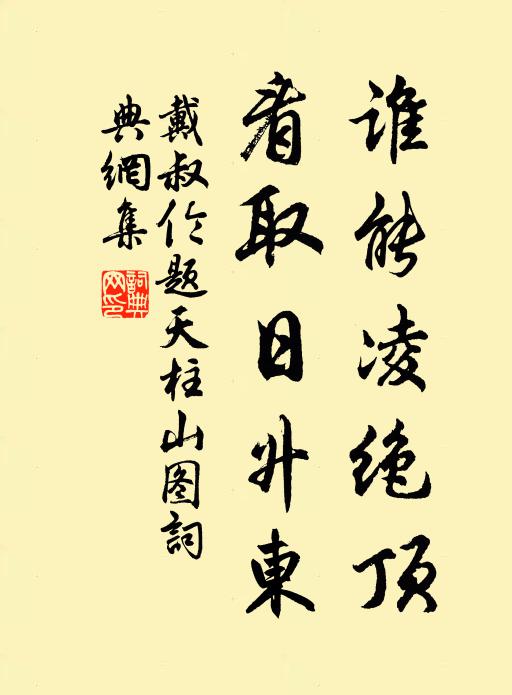 谁能凌绝顶
看取日升東
戴叔伦题天柱山图詞
典網集
詞典網印